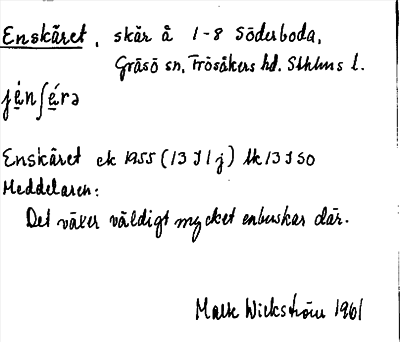 Enskäret, skär å 1-8 Söderboda,
Gräsö sn, Frösåkers hd. Sthlms l.
jènʃérə
Enskäret ek 1955 (13 I 1 j) tk 13 I SO
Meddelaren:
Det växer väldigt mycket enbuskar där.
Malte Wickström 1961